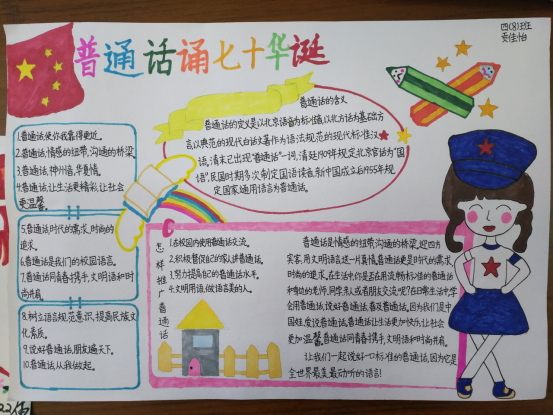 四(8)班
普通话诵七十华诞
1.普通话使你我靠得更近。
2.普通话:情感的纽带,沟通的桥梁。
3.普通话,神州音,华夏情。
4.普通话,让生活更精彩,让社会
更温馨。
5.普通话,时代的需求,时尚的
追求。
6.普通话是我们的校园语言。
7.普通话同青春携手,文明语和时
尚并肩。
8.树立语言规范意识,提高民族文
化素质。
9.说好普通话,朋友遍天下。
10.普通话从我做起。
普通话的含义
普通话的定义是以北京语音为标准音,以北方话为基础方
言,以典范的现代白话文著作为语法规范的现代标准汉
语,清末已出现"普通话"一词,清廷1909年规定北京官话为"国
语",民国时期多次制定国语读音,新中国成立后,1955年规
定国家通用语言为普通话。
怎样推广普通话
1.在校园内使用普通话交流。
2.积极督促自己的家人讲普通话。
3.努力提高自己的普通话水平。
4.文明用语,做语言美的人。
普通话是情感的纽带,沟通的桥梁,迎四方
宾客,用文明语言送一片真情,普通话更是时代的需求
时尚的追求。在生活中,你是否在用流畅标准的普通话
和身边的老师,同学,亲人或者朋友交流呢?在日常生活中学
会用普通话,说好普通话,喜爱普通话。因为我们是中
国娃,爱说普通话。普通话让生活更加快乐,让社会
更加温馨,普通话同青春携手,文明语和时尚并肩。
让我们一起说好一口标准的普通话,因为它是
全世界最美最动听的语言!